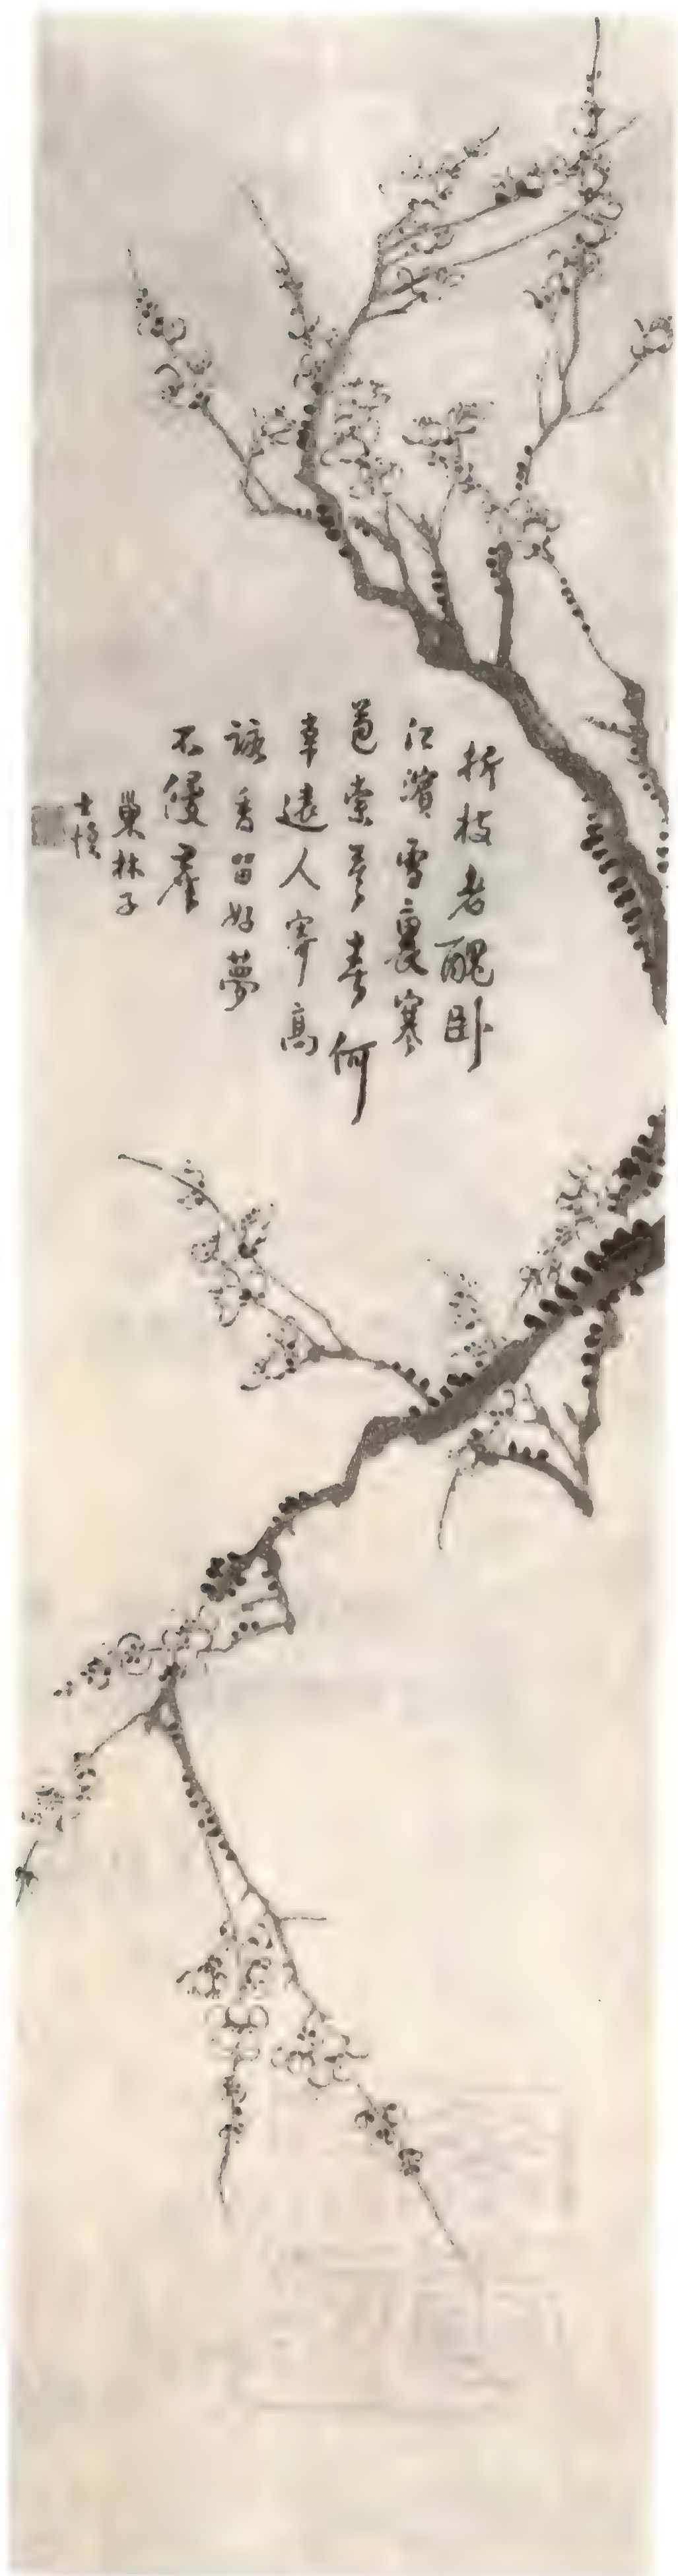 折枝老醜卧
江濱雪裏寒
苞索笑春何
幸遠人寄高
詠香留好夢
不侵塵
巢林子
士慎